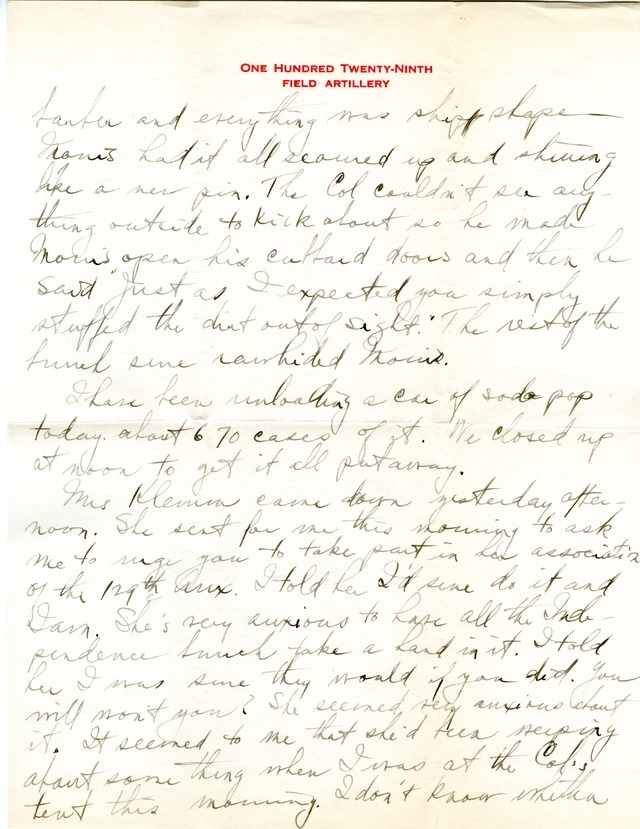 ONE HUNDRED TWENTY-NINTH
FIELD ARTILLERY
barber and everything was ship shape
Morris had it all scoured up and shining
like a new pin. The Col couldn't see any-
thing outside to kick about so he made
Morris open his cubbard doors and then he
said "Just as I expected you simply
stuffed the dirt out of sight." The rest of the
bunch sure rawhided Morris.
I have been unloading a car of soda pop
today. about 670 cases of it. We closed up
at noon to get it all put away.
Mrs Klemm came down yesterday after-
noon. She sent for me this morning to ask
me to urge you to take part in her association
of the 129th Aux. I told her I'd sure do it and
I am. She's very anxious to have all the Inde-
pendence bunch take a hand in it. I told
her I was sure they would if you did. You
will won't you? She seemed very anxious about
it. It seemed to me that she'd been weeping
about some thing when I was at the Col's
tent this morning. I don't know whether